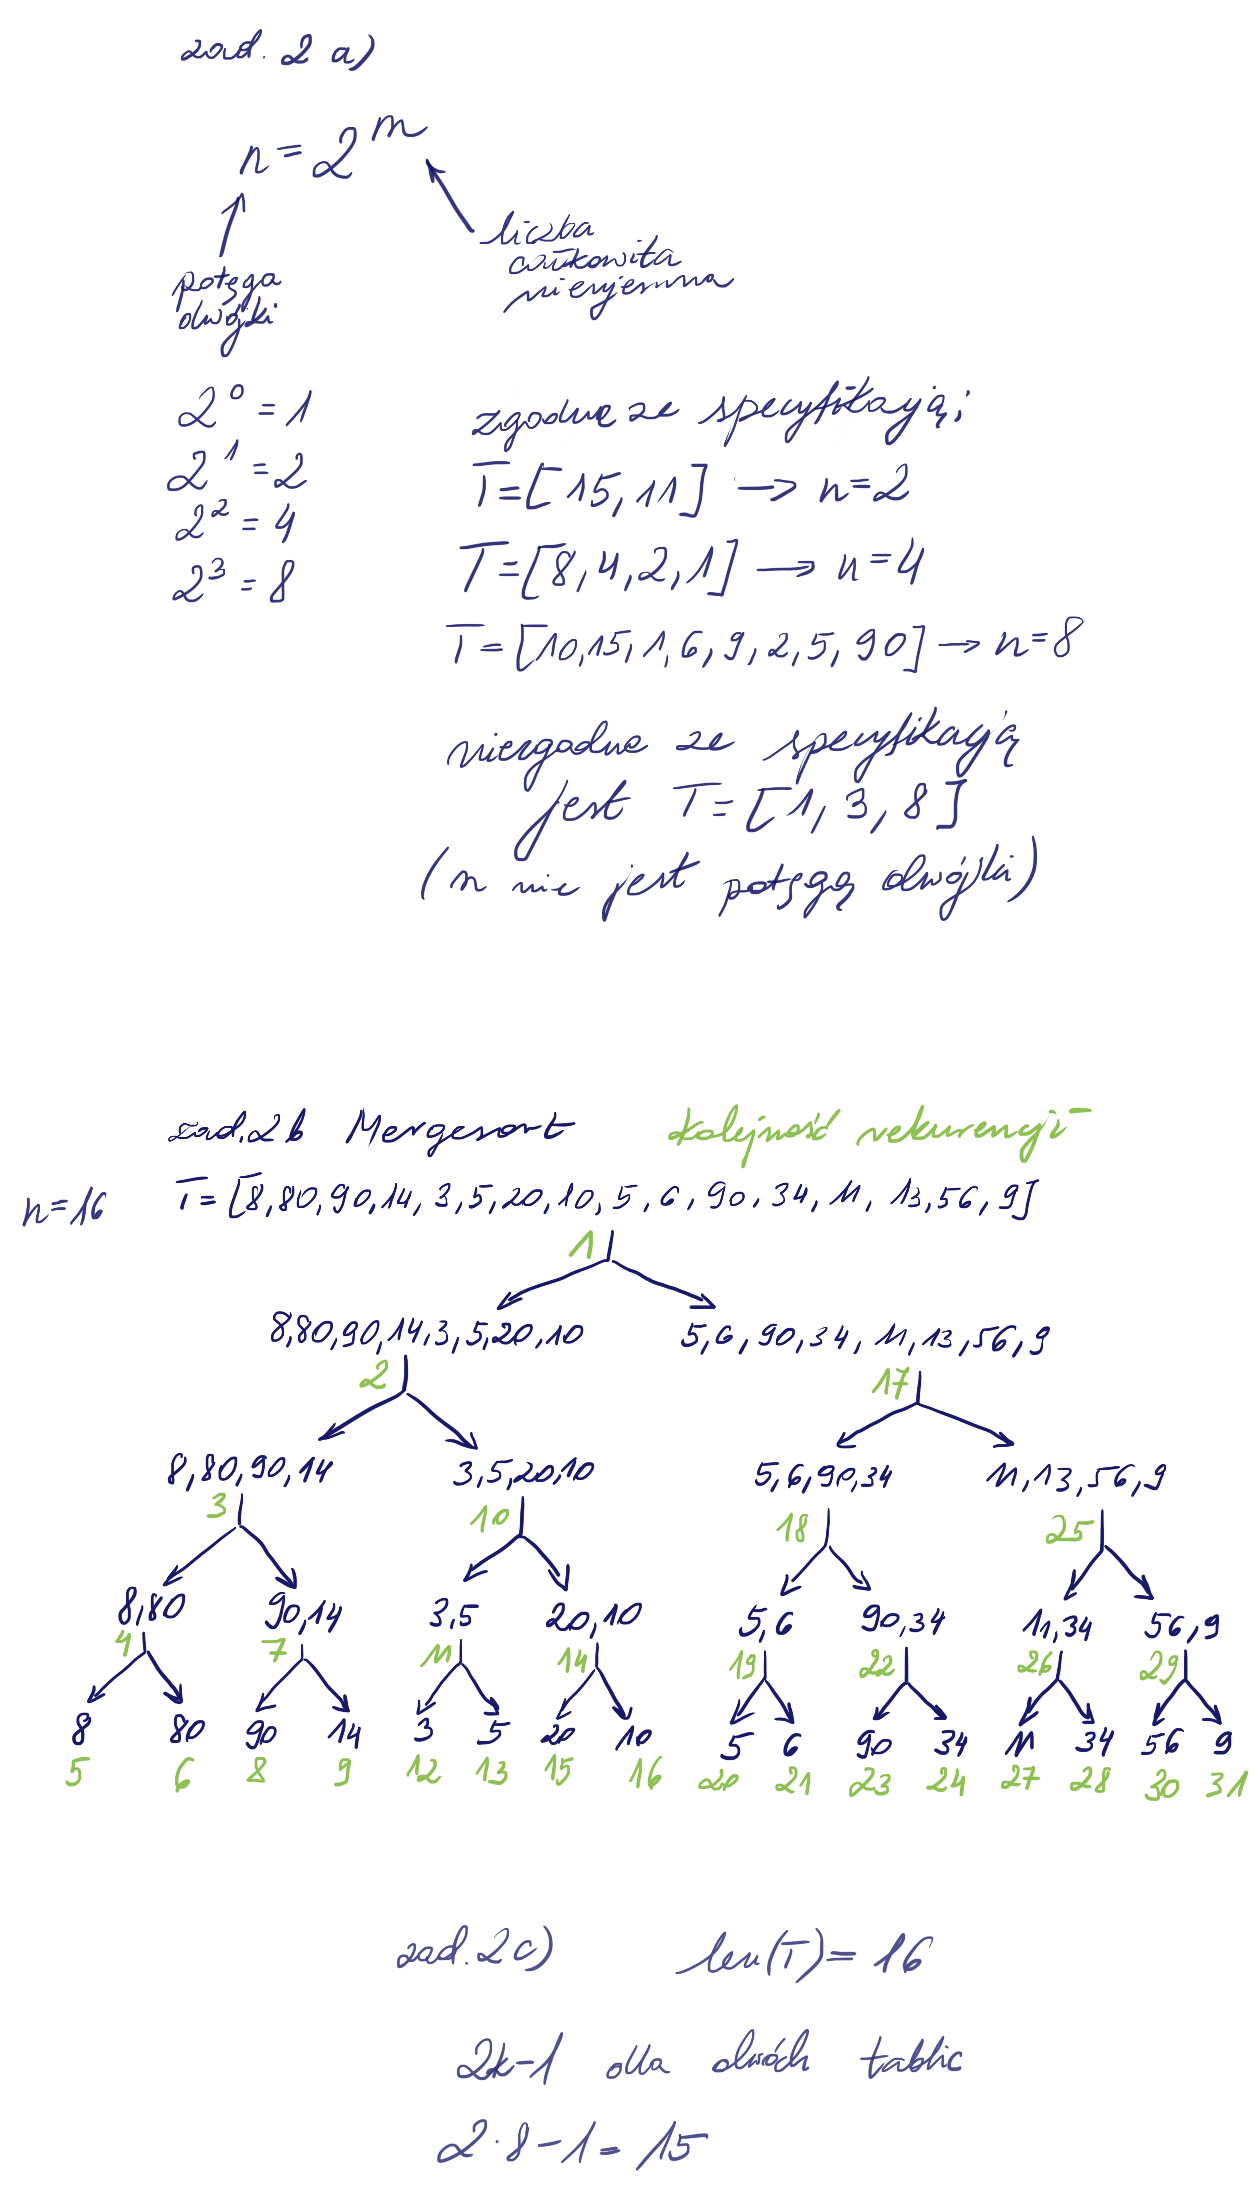 zad. 2 a)
n = 2^m
liczba
całkowita
nieujemna
potęga
dwójki
2^0 = 1
2^1 = 2
2^2 = 4
2^3 = 8
zgodne ze specyfikacją:
T=[15, 11] → n=2
T=[8, 4, 2, 1] → n=4
T=[10, 15, 1, 6, 9, 2, 5, 90] → n=8
niezgodne ze specyfikacją
jest T=[1, 3, 8]
(n nie jest potęgą dwójki)
zad. 2 b Mergesort kolejność rekurencji
n=16 T=[8, 80, 90, 14, 3, 5, 20, 10, 5, 6, 90, 34, 11, 13, 56, 9]
1
8, 80, 90, 14, 3, 5, 20, 10 5, 6, 90, 34, 11, 13, 56, 9
2 17
8, 80, 90, 14 3, 5, 20, 10 5, 6, 90, 34 11, 13, 56, 9
3 10 18 25
8, 80 90, 14 3, 5 20, 10 5, 6 90, 34 11, 34 56, 9
4 7 11 14 19 22 26 29
8 80 90 14 3 5 20 10 5 6 90 34 11 34 56 9
5 6 8 9 12 13 15 16 20 21 23 24 27 28 30 31
zad. 2 c) len(T) = 16
2k-1 dla dwóch tablic
2·8-1 = 15